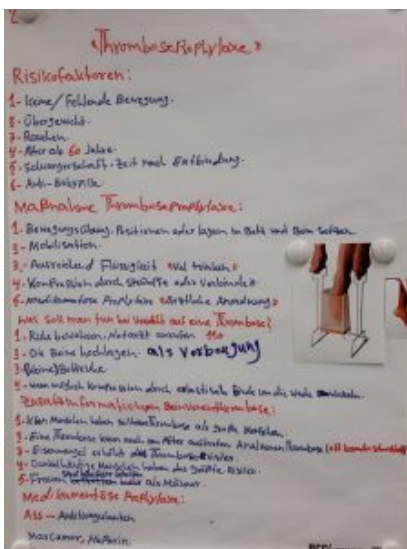 «Thromboseprophylaxe»
Risikofaktoren:
1- Keine / Fehlende Bewegung.
2- Übergewicht.
3- Rauchen.
4- Alter ab 60 Jahre.
5- Schwangerschaft. Zeit nach Entbindung.
6- Anti-Babypille
Maßnahme Thromboseprophylaxe:
1- Bewegungsübung. Positionen oder lagern im Bett und Beim Sitzen
2- Mobilisation.
3- Ausreichend Flüssigkeit «viel trinken»
4- Kompression durch Strümpfe oder Verbinden
5- medikamentöse Prophylaxe «ärztliche Anordnung»
Was soll man tun bei Verdacht auf eine Thrombose?
1- Ruhe bewahren, Notarzt anrufen 110
2- Die Beine hochlagen. als Vorbeugung
3- Bettruhe
4- wenn möglich Kompression durch elastische Binde um die Wade
Zusatzinformationen Beinvenenthrombose:
1- Menschen haben Thrombose als große Menschen.
2- Eine Thrombose kann auch am After auftreten Analvenenthrombose
3- Eisenmangel erhöht das Thromboserisiko
4- Menschen haben das größte Risiko.
5- Frauen mehr als Männer.
Medikamentöse Prophylaxe:
ASS - Antikoagulanten
Marcumar, Heparin.